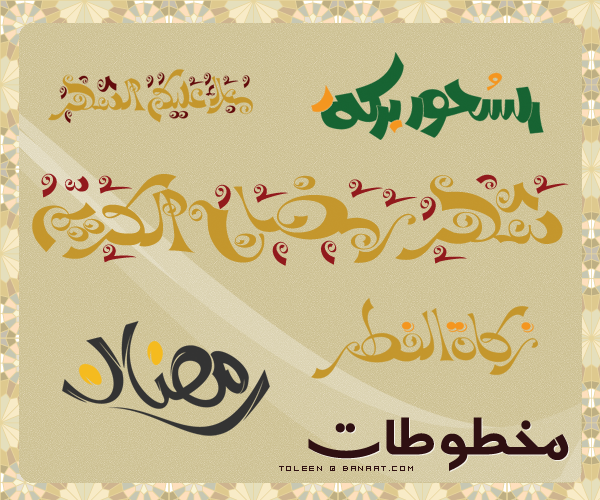 السُحور بركة
مبارك عليكم الشهر
شهر رمضان الكريم
زكاة الفطر
رمضان
مخطوطات
TOLEEN @ BANAAT.COM